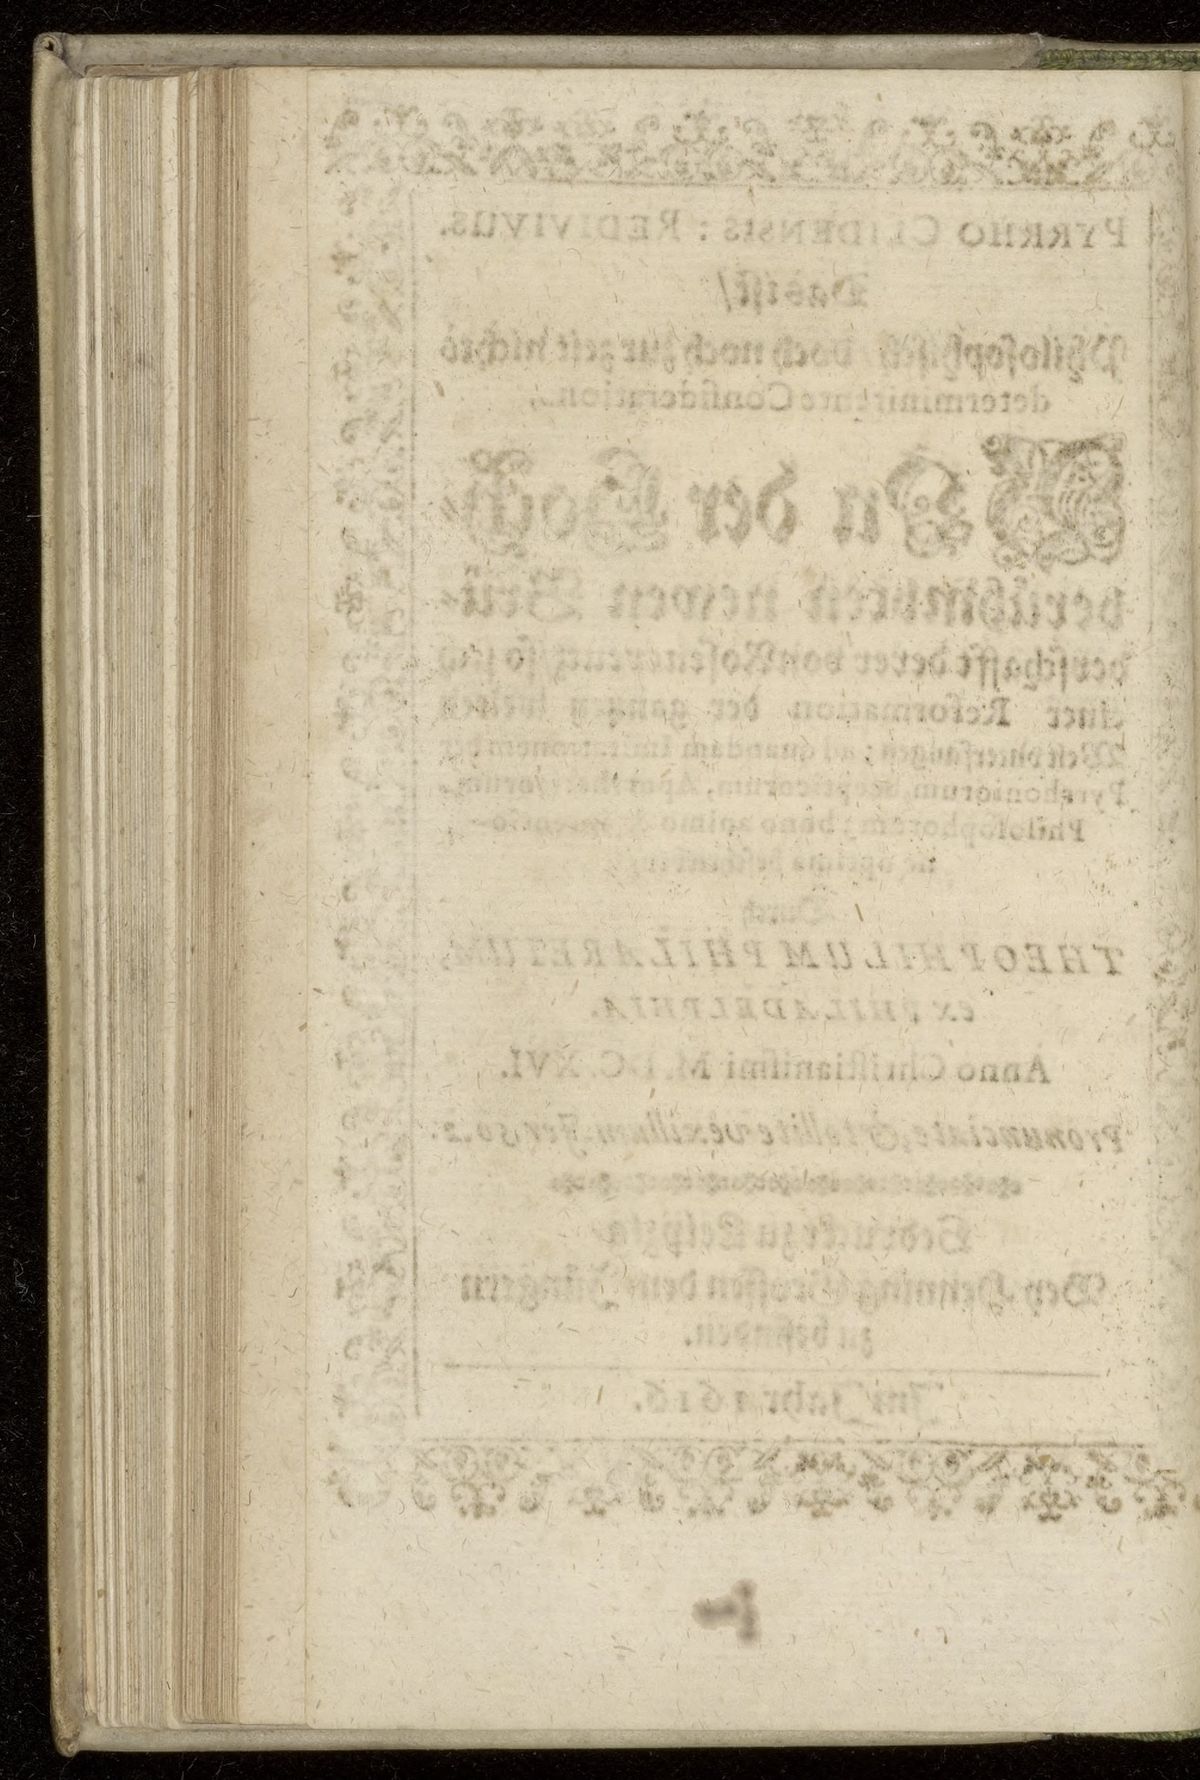 PYRRHO CLIDENSIS : REDIVIVUS.
Das ist/
Philosophische doch noch zur zeit nichts
determinirente Consideration,
VOn der Hoch-
berühmbten newen Brü-
derschafft derer von Rosencreutz/ so zu
einer Reformation der gantzen weiten
Welt unterfangen; ad quandam imitationem der
Pyrrhoniorum Scepticorum,
Philosophorum; bono animo &
optima beschrieben/
Durch
THEOPHILUM PHILARETUM,
ex PHILADELPHIA.
Anno Christianissimi M. DC. XVI.
Pronunciate, & tollite vexillum. Jer. 50. 2.
Gedruckt zu Leipzig
Bey Henning Grossen dem Jüngern
zu befinden.
Im Jahr 1616.